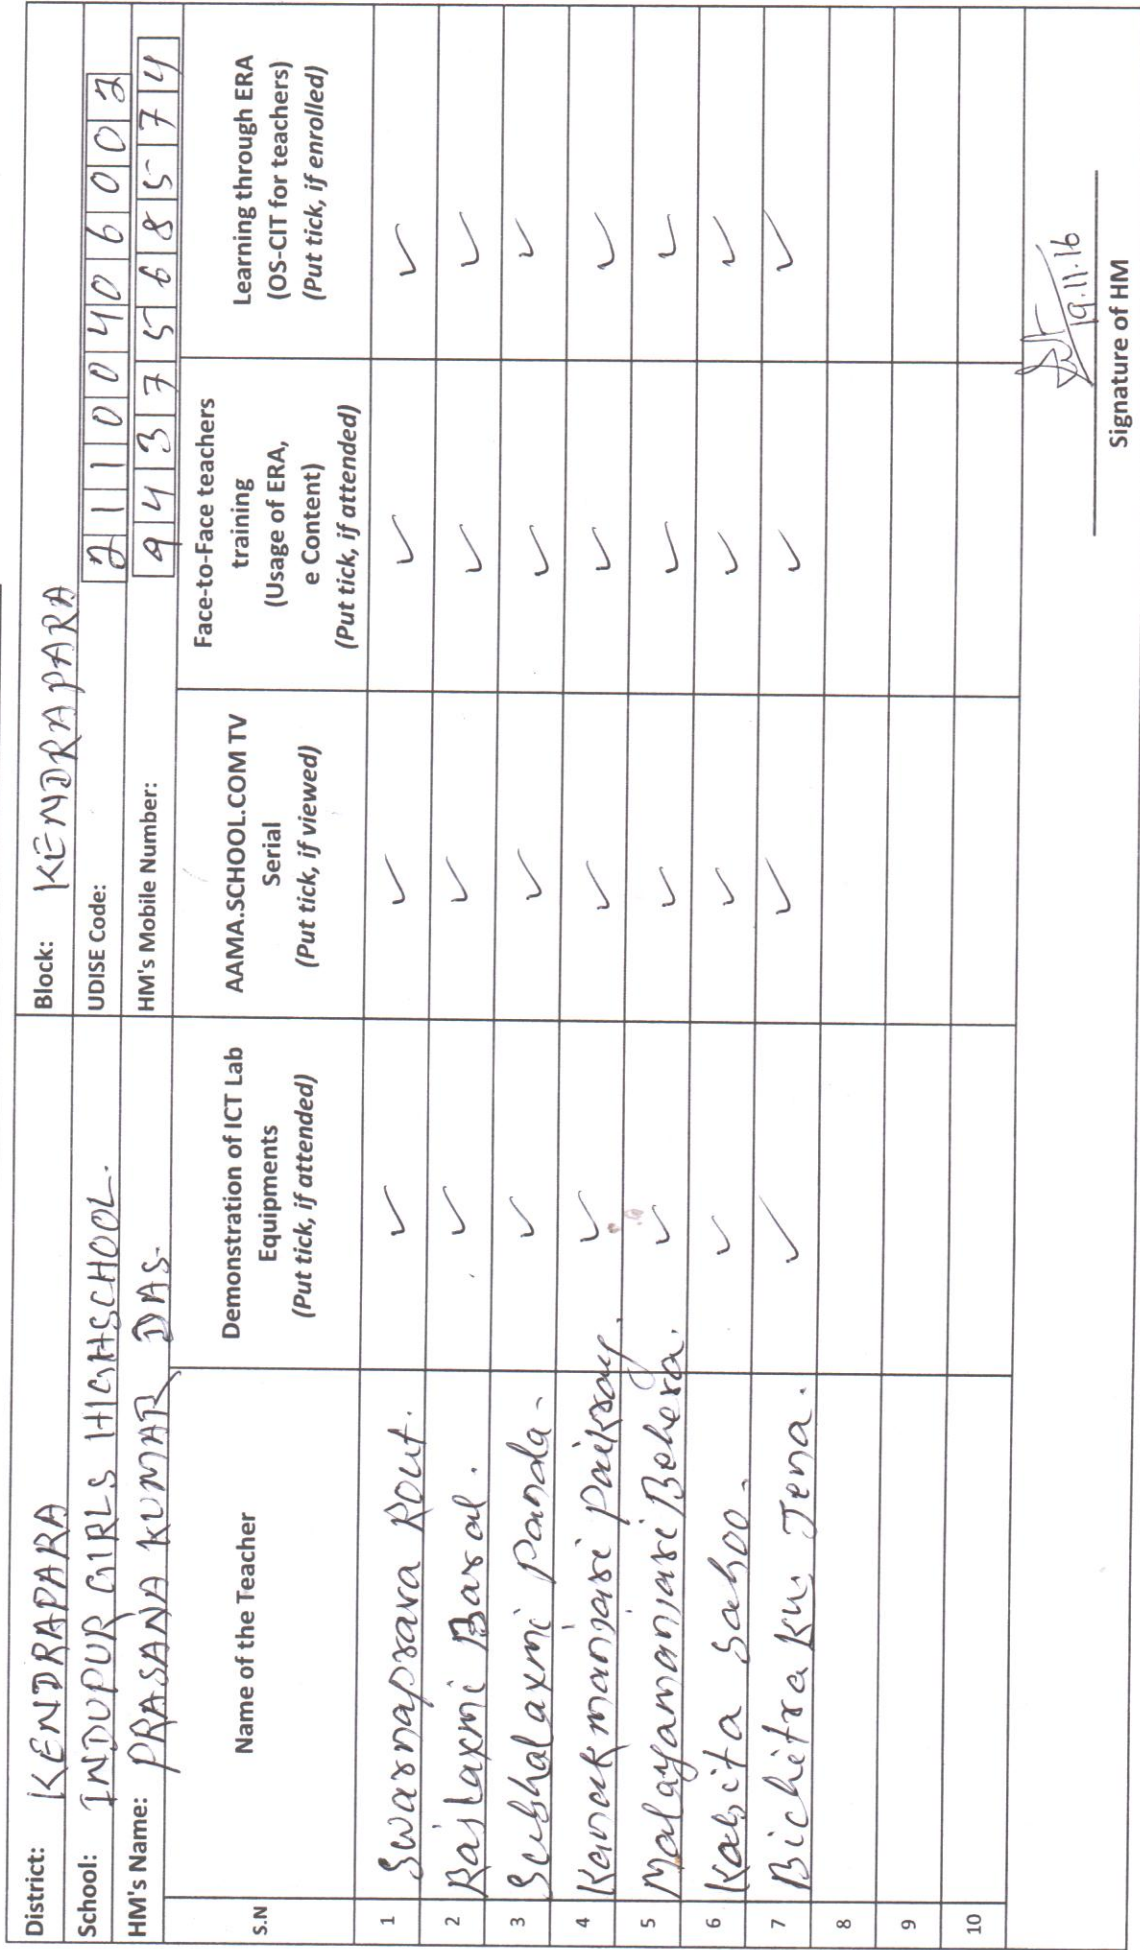 District: KENDRAPARA Block: KENDRAPARA
School: INDUPUR GIRLS HIGHSCHOOL. UDISE Code: 21100406002
HM's Name: PRASANA KUMAR DAS. HM's Mobile Number: 9437568574
S.N Name of the Teacher Demonstration of ICT Lab Equipments (Put tick, if attended) AAMA.SCHOOL.COM TV Serial (Put tick, if viewed) Face-to-Face teachers training (Usage of ERA, e Content) (Put tick, if attended) Learning through ERA (OS-CIT for teachers) (Put tick, if enrolled)
1 Swarnaprava Rout. ✓ ✓ ✓ ✓
2 Rajlaxmi Baral. ✓ ✓ ✓ ✓
3 Subhalaxmi Panda. ✓ ✓ ✓ ✓
4 Kanakmanjari Paikray. ✓ ✓ ✓ ✓
5 Malayamanjari Behera. ✓ ✓ ✓ ✓
6 Kabita Sahoo. ✓ ✓ ✓ ✓
7 Bichitra Ku. Jena. ✓ ✓ ✓ ✓
8
9
10
19.11.16
Signature of HM